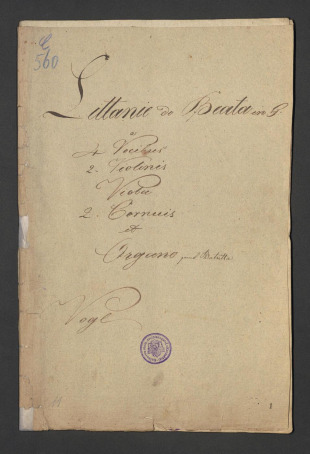 E
560
Lettanie de Beata in G.
a
4 Vocibus
2. Violinis
Viola
2. Cornuis
et
Organo
Vogl
1